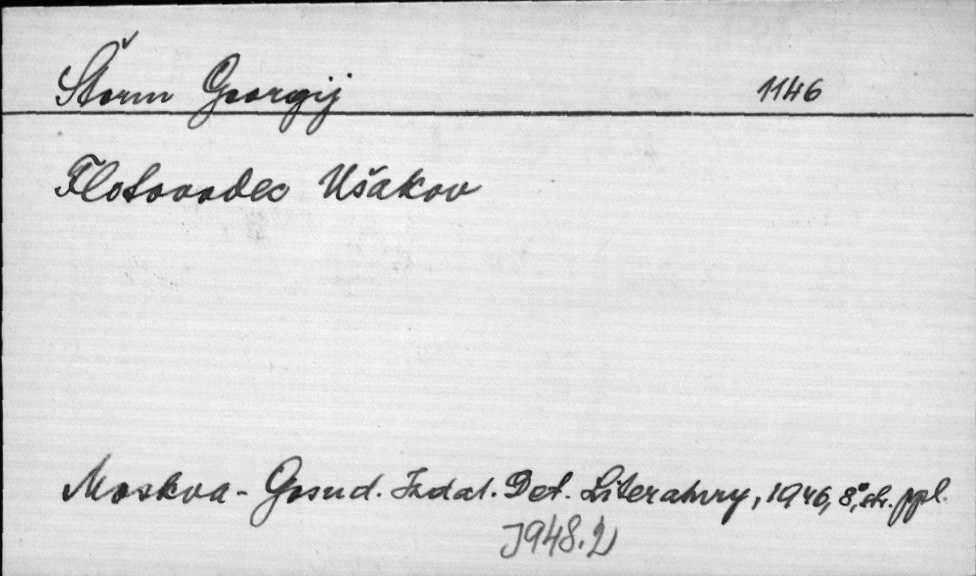 Štorm Georgij 1146
Flotovodec Ušakov
Moskva - Gosud. Izdat. Det. Literatury, 1946, 8°, str.
J948.2